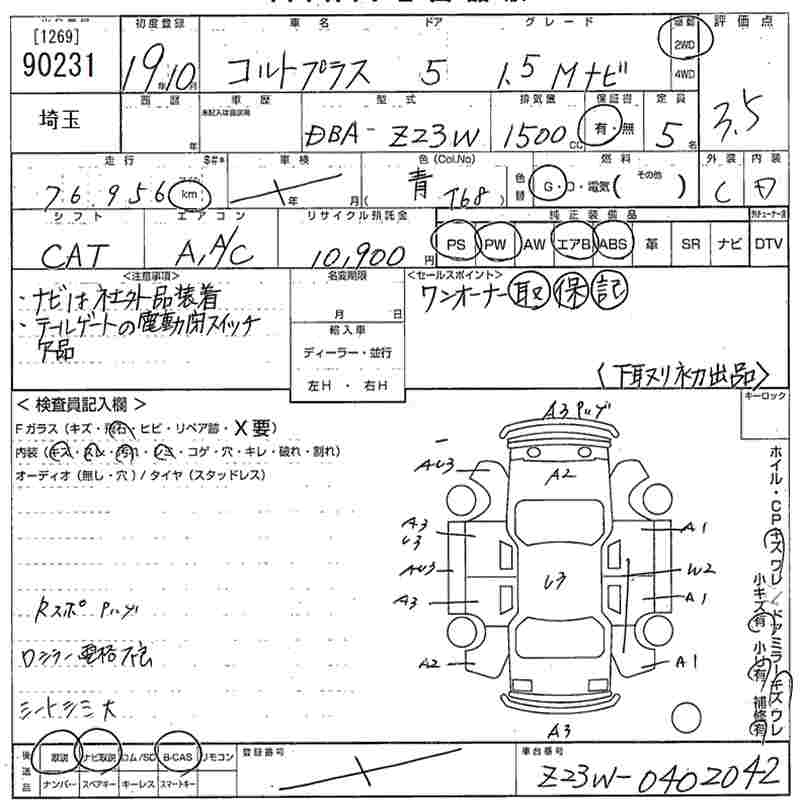 [1269]
90231
初度登録 車名 ドア グレード 駆動 評価点
19年10月 コルトプラス 5 1.5 M ナビ 2WD 4WD
3.5
埼玉
車歴 型式 排気量 保証書 定員
未記入は自家用
年 DBA-Z23W 1500cc 有・無 5名
走行 車検 色(Col.No) 燃料 外装 内装
76,956 km 年 月( 青 T68 ) 色替 G・D・電気( その他 ) C D
シフト エアコン リサイクル預託金 純正装備品
CAT A,A/C 10,900円 PS PW AW エアB ABS 革 SR ナビ DTV
<注意事項> 名変期限 <セールスポイント>
・ナビは社外品装着
・テールゲートの電動閉スイッチ
欠品
月 日
輸入車
ディーラー・並行
左H ・ 右H
ワンオーナー 取 保 記
〈下取り初出品〉
<検査員記入欄> キーロック
Fガラス(キズ・飛石・ヒビ・リペア跡・X要)
内装(キズ・スレ・汚れ・シミ・コゲ・穴・キレ・破れ・割れ)
オーディオ(無し・穴)/タイヤ(スタッドレス)
A3
A2
AU3
A3
U3
A1
AU3
W2
U3
A3
A1
A2
A1
A3
ホイル・CP キズ ワレ/ドアミラー キズ ワレ
小キズ有 小凹有 補修有
シートシミ大
後送品 取説 ナビ取説 コム/SD B-CAS リモコン
ナンバー スペアキー キーレス スマートキー
登録番号 車台番号
Z23W-0402042